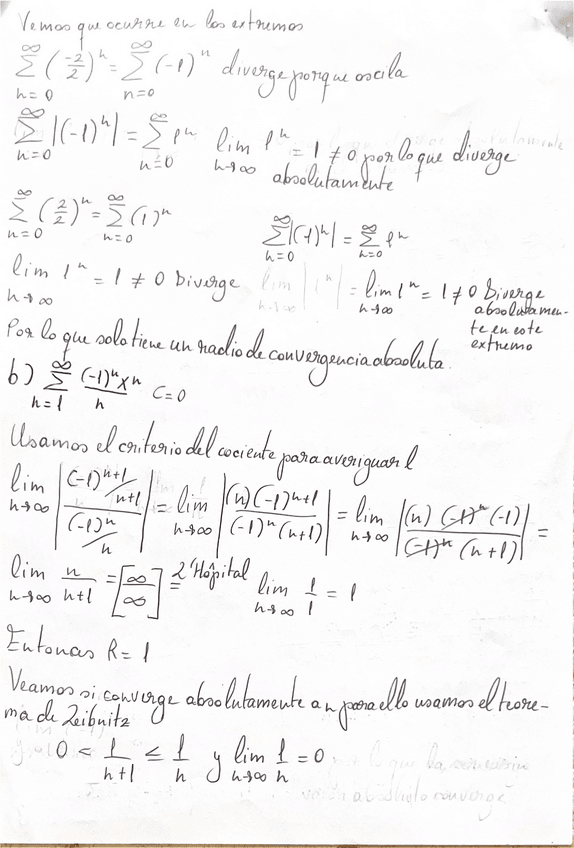 Vemos que ocurre en los extremos
∞∑n=0 (-2/2)^n = ∞∑n=0 (-1)^n diverge porque oscila
∞∑n=0 |(-1)^n| = ∞∑n=0 1^n lim n→∞ 1^n = 1 ≠ 0 por lo que diverge
absolutamente
∞∑n=0 (2/2)^n = ∞∑n=0 (1)^n ∞∑n=0 |(1)^n| = ∞∑n=0 1^n
lim n→∞ 1^n = 1 ≠ 0 Diverge = lim n→∞ 1^n = 1 ≠ 0 Diverge
absolutamen-
te en este
extremo
Por lo que solo tiene un radio de convergencia absoluta.
b) ∞∑n=1 (-1)^n x^n / n C=0
Usamos el criterio del cociente para averiguar l
lim n→∞ |((-1)^{n+1}/n+1) / ((-1)^n/n)| = lim n→∞ |(n)(-1)^{n+1} / (-1)^n (n+1)| = lim n→∞ |(n) (-1)^n (-1) / (-1)^n (n+1)| =
lim n→∞ n/n+1 = [∞/∞] = L'Hôpital lim n→∞ 1/1 = 1
Entonces R = 1
Veamos si converge absolutamente an para ello usamos el teore-
ma de Leibnitz
0 < 1/n+1 ≤ 1/n y lim n→∞ 1/n = 0